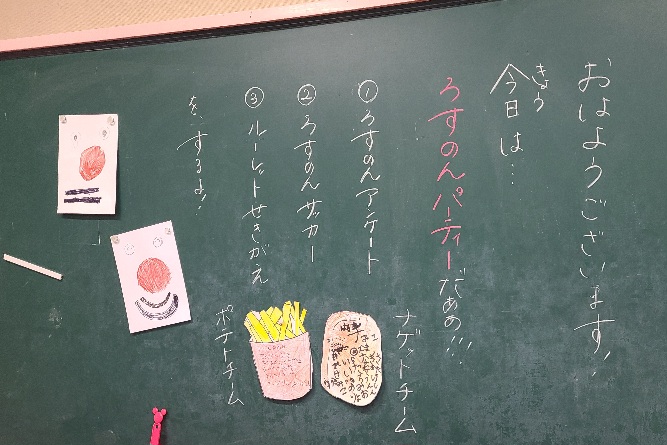 おはようございます!
きょう
今日は…
ろすのんパーティーだぁぁ!!!
①ろすのんアンケート
②ろすのんサッカー
③ルーレットせきがえ
を、するよ!
ナゲットチーム
ポテトチーム